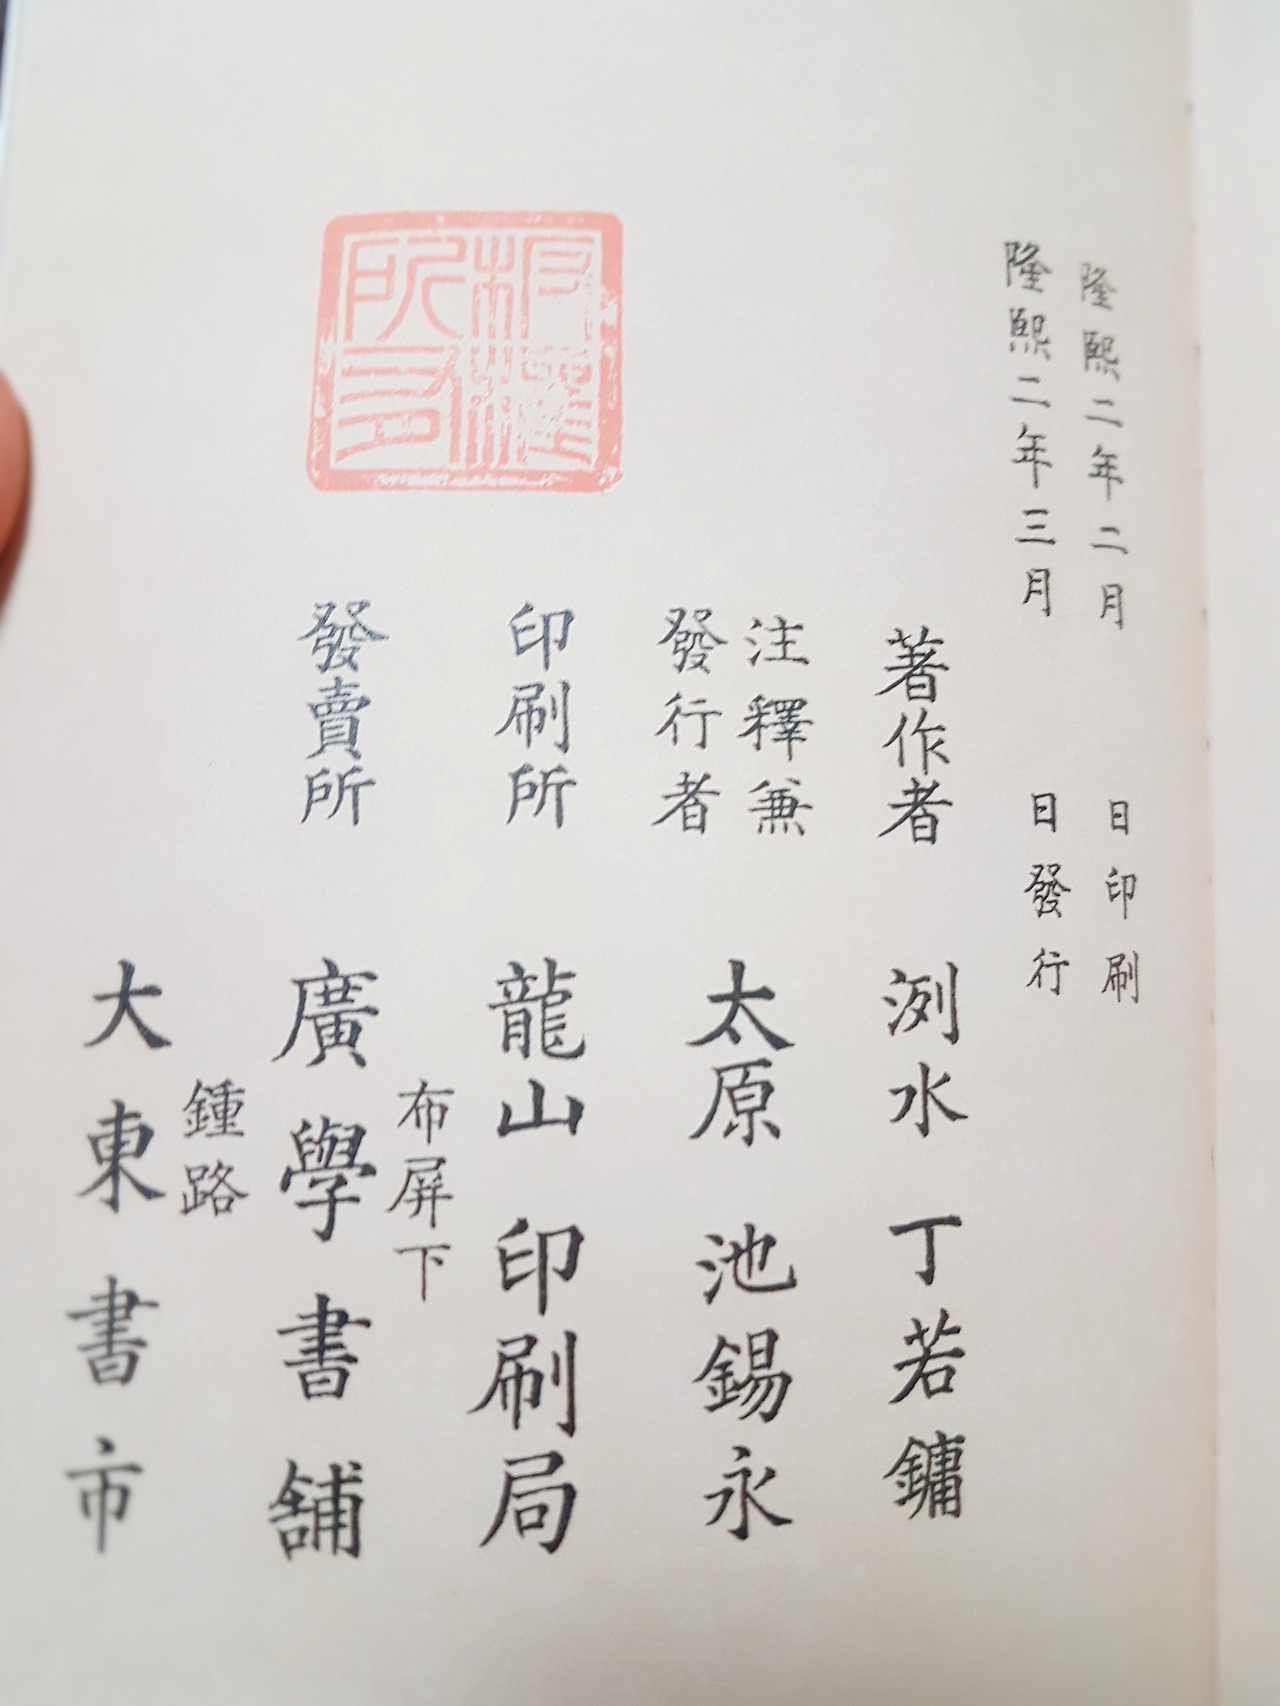 隆熙二年二月 日印刷
隆熙二年三月 日發行
著作者 洌水 丁若鏞
注釋兼
發行者 太原 池錫永
印刷所 龍山印刷局
布屏下
發賣所 廣學書舖
鍾路
大東書市
板權所有